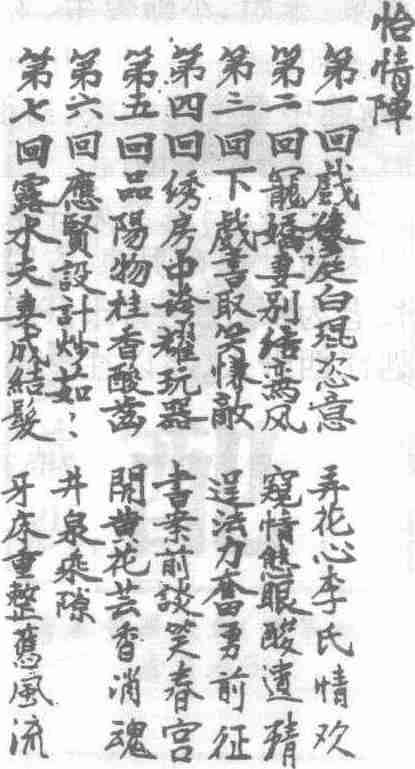 怡情陣
第一回 戲後庭白琨恣意 弄花心李氏情欢
第二回 寵嬌妻别结鸾凤 窺情態眼酸遗精
第三回 下戲書取笑惊敵 逞法力奮勇前征
第四回 绣房中誇耀玩器 書案前談笑春宫
第五回 品陽物桂香酸齒 開黄花芸香消魂
第六回 應賢設計炒茹? 井泉乘隙
第七回 露水夫妻成結髮 牙床重整舊風流